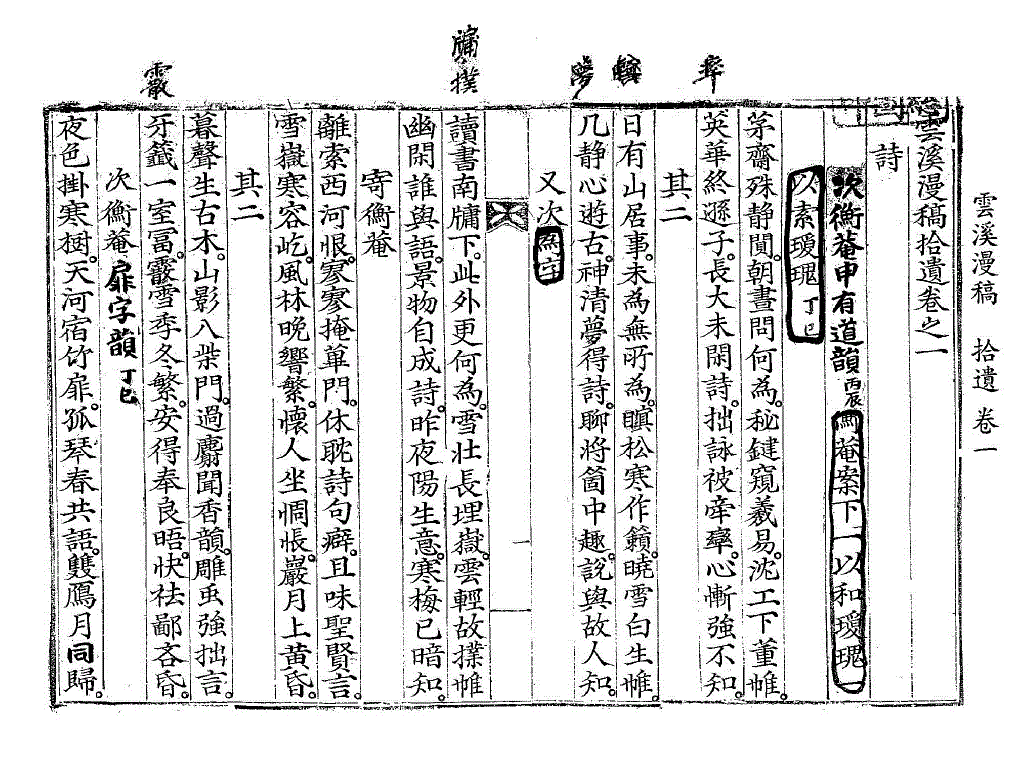 雲溪漫稿 拾遺 卷一
牖撲
霰
雲溪漫稿拾遺卷之一
詩
次衡菴申有道韻 丙辰 衡菴案下一以和瓊瑰一
以索瓊瑰 丁巳
茅齋殊静閒朝晝問何為秘鍵窺羲易沈工下董帷
英華終遜子長大未閑詩拙詠被牽孿心慚強不知
其二
日有山居事未為無所為瞋松寒作籟曉雪白生帷
几静心遊古神清夢得詩聊將箇中趣說與故人知
又次
讀書南牖下此外更何為雪壯長埋嶽雲輕故撲帷
幽閑誰與語景物自成詩昨夜陽生意寒梅已暗知
寄衡菴
離索西河恨寥寥掩蓽門休耽詩句癖且味聖賢言
雪嶽寒容屹風林晚響繁懷人坐惆悵巖月上黃昏
其二
暮聲生古木山影入柴門過麝聞香韻雕虫強拙言
牙籤一室富霰雪季冬繁安得奉良晤快祛鄙吝昏
次衡菴扉字韻 丁巳
夜色掛寒樹天河宿竹扉孤琴春共語雙鴈月同歸